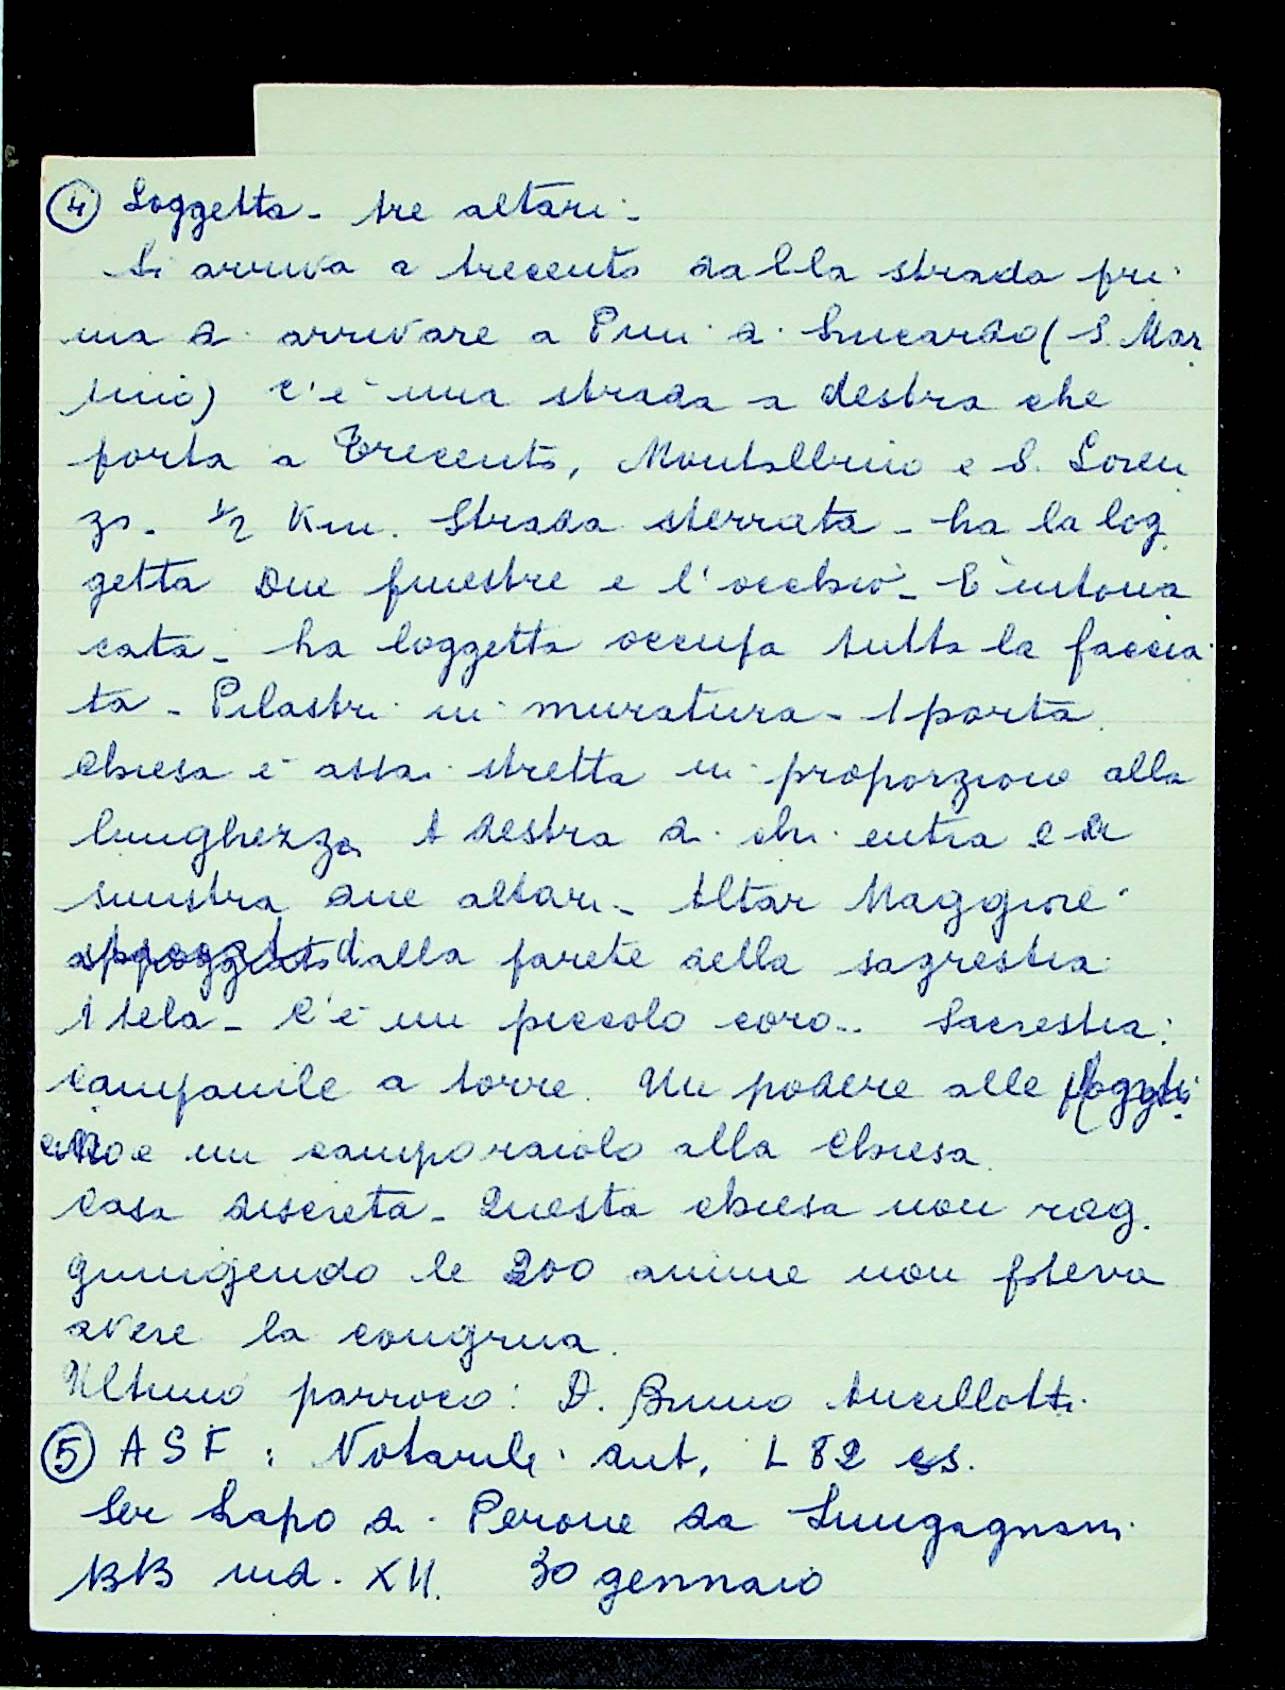 ④ Loggetta - tre altari -
Si arriva a trecento dalla strada pri
ma di arrivare a Pini di Lucardo (S. Mar
tino) c'è una strada a destra che
porta a Trecento, Montalbino e S. Loren
zo. ½ Km. Strada sterrata - ha la log
getta due finestre e l'occhio - È intona
cata - La loggetta occupa tutta la faccia
ta - Pilastri in muratura - 1 porta.
Chiesa è assai stretta in proporzione alla
lunghezza A destra di chi entra e a
sinistra due altari - Altar Maggiore
appoggiato dalla parete della sagrestia
1 tela - C'è un piccolo coro .. Sacrestia:
Campanile a torre. Un podere alle
e un camporaiolo alla Chiesa.
Casa discreta - Questa chiesa non rag
giungendo le 200 anime non poteva
avere la congrua.
Ultimo parroco: D. Bruno Ancillotti.
⑤ ASF: Notarile ant. L 82 ss.
Ser Lapo di Perone da Lungagnana
1313 ind. XII. 30 gennaio